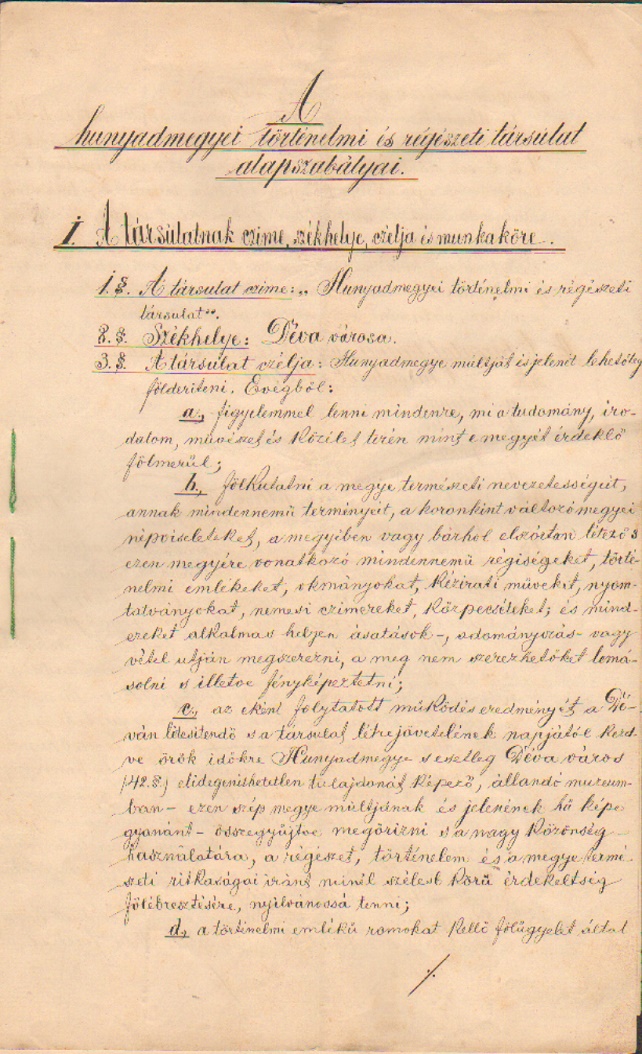 A
hunyadmegyei történelmi és régészeti társulat
alapszabályai.
I. A társulatnak czime, székhelye, czélja és munkaköre.
1. §. A társulat czime: „Hunyadmegyei történelmi és régészeti
társulat".
2. §. Székhelye: Déva városa.
3. §. A társulat czélja: Hunyadmegye múltját és jelenét lehetőleg
földeriteni. Evégből:
a., figyelemmel lenni mindenre, mi a tudomány, iro-
dalom, művészet és közélet terén mint e megyét érdeklő
fölmerül;
b., fölkutatni a megye természeti nevezetességeit,
annak mindennemű terményeit, a koronkint változó megyei
népviseleteket, a megyében vagy bárhol elszórtan létező s
ezen megyére vonatkozó mindennemű régiségeket, törté-
nelmi emlékeket, okmányokat, kézirati műveket, nyom-
tatványokat, nemesi czimereket, közpecséteket; és mind-
ezeket alkalmas helyen ásatások-, adományozás- vagy
vétel utján megszerezni, a meg nem szerezhetőket lemá-
solni s illetve fényképeztetni;
c., az eként folytatott működés eredményét a Dé-
ván létesítendő s a társulat létrejövetelének napjától kezd-
ve örök időkre Hunyadmegye s esetleg Déva város
(42.§.) elidegenithetetlen tulajdonát képező, állandó muzeum-
ban - ezen szép megye múltjának és jelenének hű képe
gyanánt - összegyűjtve megőrizni s a nagy közönség
használatára, a régészet, történelem és a megye termé-
szeti ritkaságai iránt minél szélesb körű érdekeltség
fölébresztésére, nyilvánossá tenni;
d., a történelmi emlékű romokat kellő fölügyelet által
./.